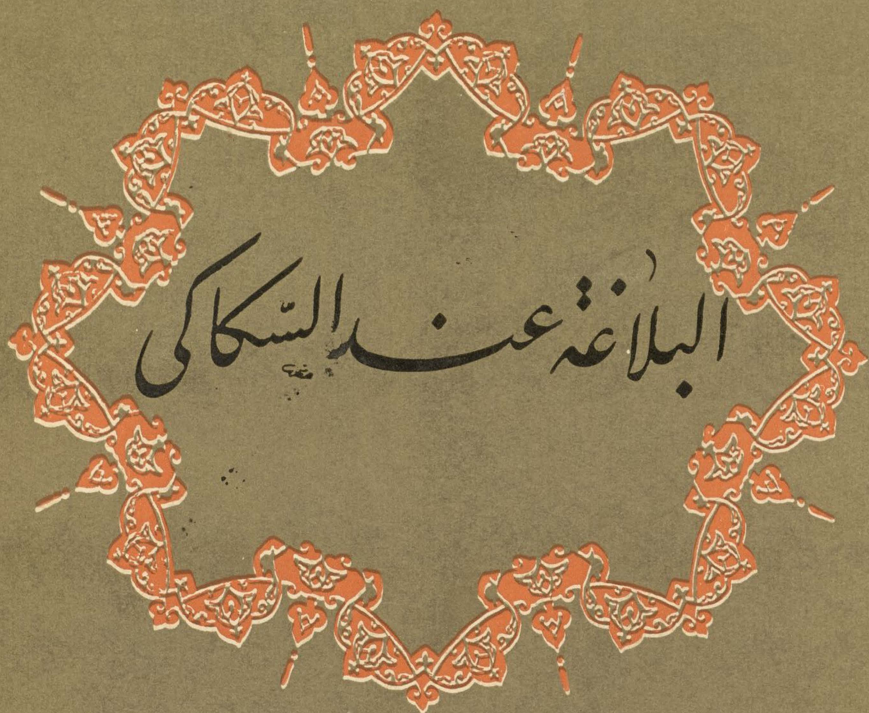 البلاغة عند السّكاكى